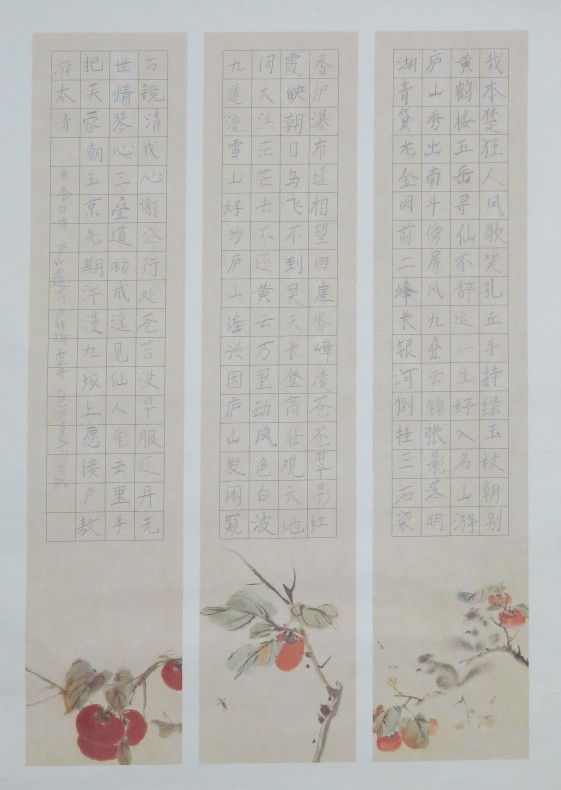 我本楚狂人凤歌笑孔丘手持绿玉杖朝别
黄鹤楼五岳寻仙不辞远一生好入名山游
庐山秀出南斗傍屏风九叠云锦张影落明
湖青黛光金阙前二峰长银河倒挂三石梁
香炉瀑布遥相望回崖沓嶂凌苍苍翠影红
霞映朝日鸟飞不到吴天长登高壮观天地
间大江茫茫去不还黄云万里动风色白波
九道流雪山好为庐山谣兴因庐山发闲窥
石镜清我心谢公行处苍苔没早服还丹无
世情琴心三叠道初成遥见仙人彩云里手
把芙蓉朝玉京先期汗漫九垓上愿接卢敖
游太清
李白诗 庐山谣寄卢侍御虚舟